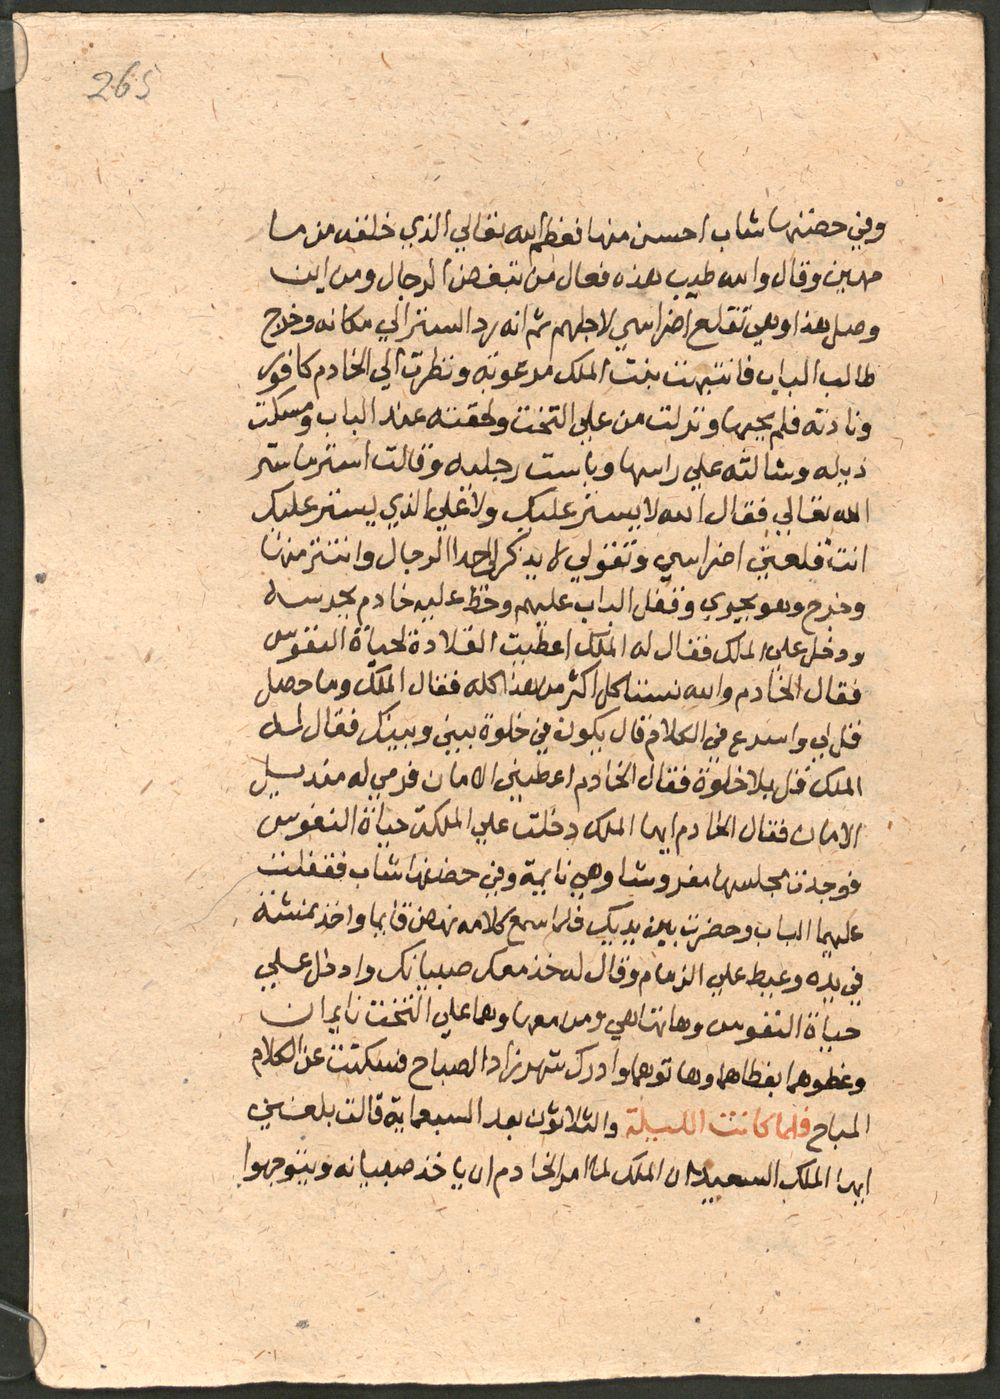 265
وفي حضنها شاب احسن منها فعظم الله تعالي الذي خلقه من ما
مهين وقال والله طيب هذه فعال من تبغض الرجال ومن اين
وصل هذا وهي تقلع اضراسي لاجلهم ثم انه رد الستر الي مكانه وخرج
طالب الباب فانتبهت بنت الملك مرعوبة ونظرت الي الخادم كافور
ونادته فلم يجبها ونزلت من علي التخت ولحقته عند الباب ومسكت
ذيله وشالته علي راسها وباست رجليه وقالت استر ما ستر
الله تعالي فقال الله لا يستر عليك ولا علي الذي يستر عليك
انت قلعتي اضراسي وتقولي لا يذكر احدا الرجال وانتتر منها
وخرج وهو يجري وقفل الباب عليهم وحط عليه خادم يحرسه
ودخل علي الملك فقال له الملك اعطيت القلادة لحياة النفوس
فقال الخادم والله نستاكل اكثر من هذا كله فقال الملك وما حصل
قل لي واسرع في الكلام قال يكون في خلوة بيني وبينك فقال له
الملك قل بلا خلوة فقال الخادم اعطيني الامان فرمي له منديل
الامان فقال الخادم ايها الملك دخلت علي الملكة حياة النفوس
فوجدت مجلسها مفروشا وهي نايمة وفي حضنها شاب فقفلت
عليهما الباب وحضرت بين يديك فلما سمع كلامه نهض قايما واخذ نمشته
في يده وعيط علي الزمام وقال له خذ معك صبيانك وادخل علي
حياة النفوس وهاتها هي ومن معها وهما علي التخت نايمان
وغطوهما بغطاهما وهاتوهما وادرك شهرزاد الصباح فسكتت عن الكلام
المباح فلما كانت الليلة والثلاثون بعد السبعماية قالت بلغني
ايها الملك السعيد ان الملك لما امر الخادم ان ياخذ صبيانه ويتوجهوا